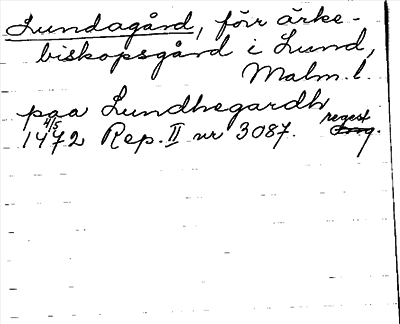 Lundagård, förr ärke-
biskopsgård i Lund,
Malm. l.
paa Lundhegardh
1472 4/5 Rep. II nr 3087. regest